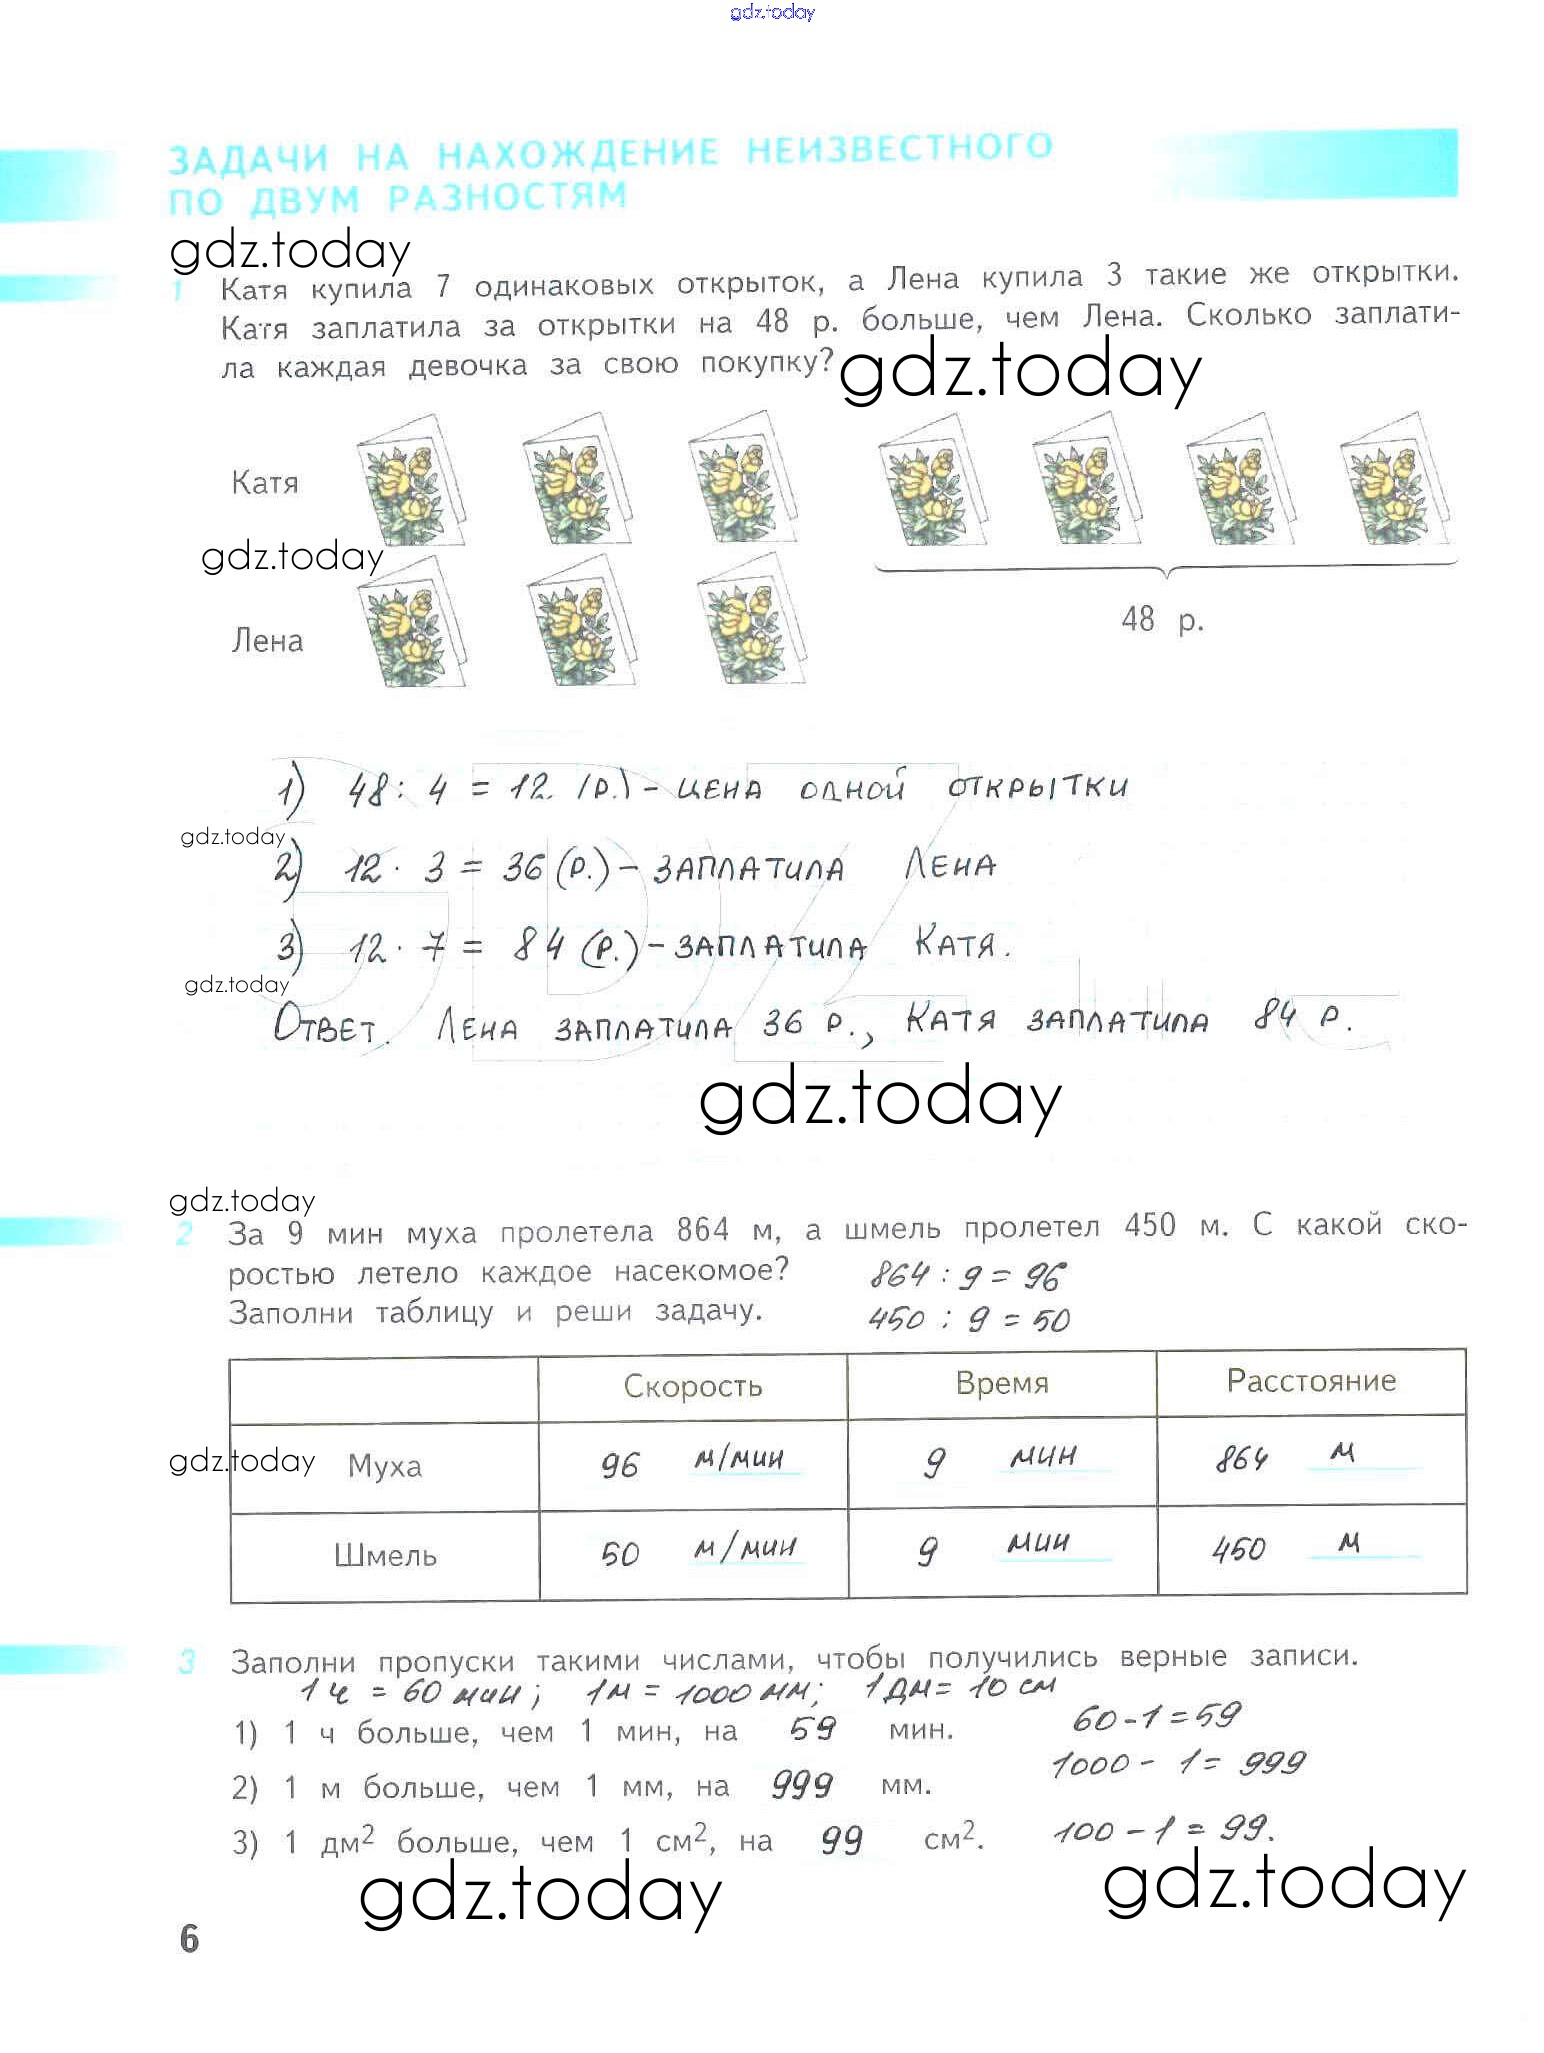 gdz.today
ЗАДАЧИ НА НАХОЖДЕНИЕ НЕИЗВЕСТНОГО
ПО ДВУМ РАЗНОСТЯМ
gdz.today
1 Катя купила 7 одинаковых открыток, а Лена купила 3 такие же открытки.
Катя заплатила за открытки на 48 р. больше, чем Лена. Сколько заплати-
ла каждая девочка за свою покупку?
gdz.today
Катя
gdz.today
Лена
48 р.
1) 48 : 4 = 12. (р.) - цена одной открытки
gdz.today
2) 12 · 3 = 36 (р.) - заплатила Лена
3) 12 · 7 = 84 (р.) - заплатила Катя.
gdz.today
Ответ. Лена заплатила 36 р., Катя заплатила 84 р.
gdz.today
gdz.today
2 За 9 мин муха пролетела 864 м, а шмель пролетел 450 м. С какой ско-
ростью летело каждое насекомое? 864 : 9 = 96
Заполни таблицу и реши задачу. 450 : 9 = 50
Скорость Время Расстояние
gdz.today Муха 96 м/мин 9 мин 864 м
Шмель 50 м/мин 9 мин 450 м
3 Заполни пропуски такими числами, чтобы получились верные записи.
1 ч = 60 мин; 1м = 1000 мм; 1дм = 10 см
1) 1 ч больше, чем 1 мин, на 59 мин. 60-1=59
2) 1 м больше, чем 1 мм, на 999 мм. 1000 - 1 = 999
3) 1 дм² больше, чем 1 см², на 99 см². 100 - 1 = 99.
gdz.today gdz.today
6